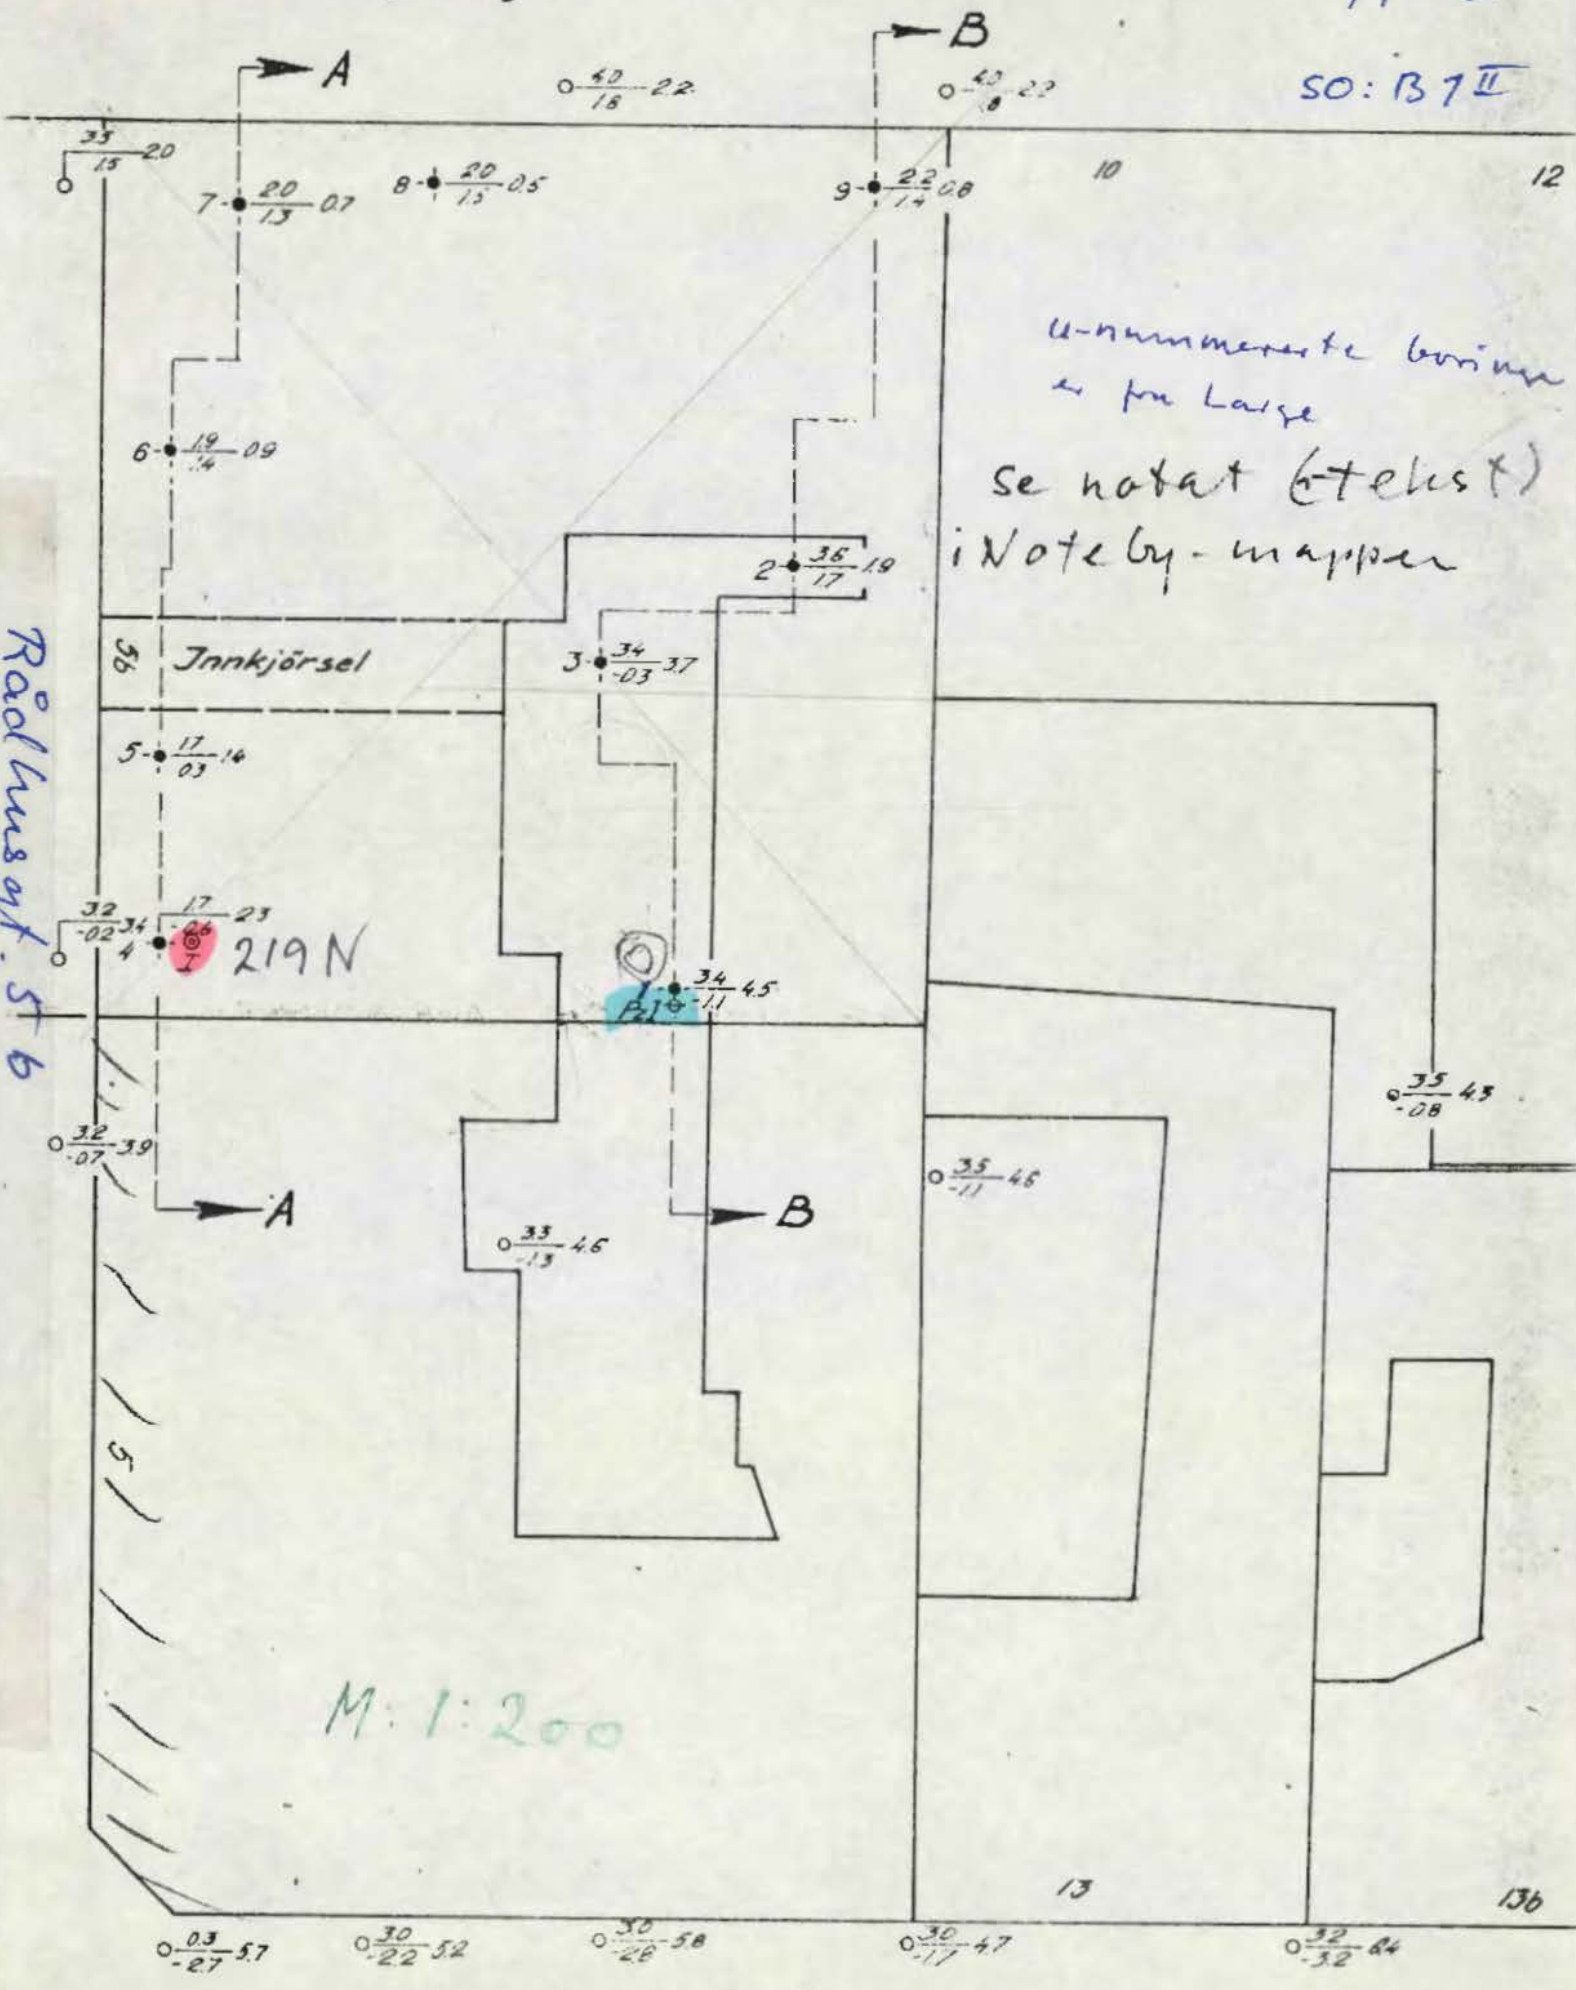 A
B
SO: B 7 II
4.0 / 1.8 2.2
4.0 / 1.8 2.2
3.5 / 1.5 2.0
7 2.0 / 1.3 0.7
8 2.0 / 1.5 0.5
9 2.2 / 1.4 0.8
10
12
u-nummererte
er fra Large
se notat (+tekst)
i Noteby-mappen
6 1.9 / 1.4 0.9
2 3.6 / 1.7 1.9
5b
Innkjörsel
3 3.4 / -0.3 3.7
5 1.7 / 0.3 1.4
Rådhusgt. 5 b
3.2 / -0.2 3.4
4 1.7 / -0.6 2.3
I
219 N
1 3.4 / -1.1 4.5
Pz1
3.5 / -0.8 4.3
3.2 / -0.7 3.9
3.5 / -1.1 4.6
A
B
3.3 / -1.3 4.6
5
M: 1:200
13
13b
0.3 / -2.7 5.7
3.0 / -2.2 5.2
3.0 / -2.8 5.8
3.0 / -1.7 4.7
3.2 / -3.2 6.4